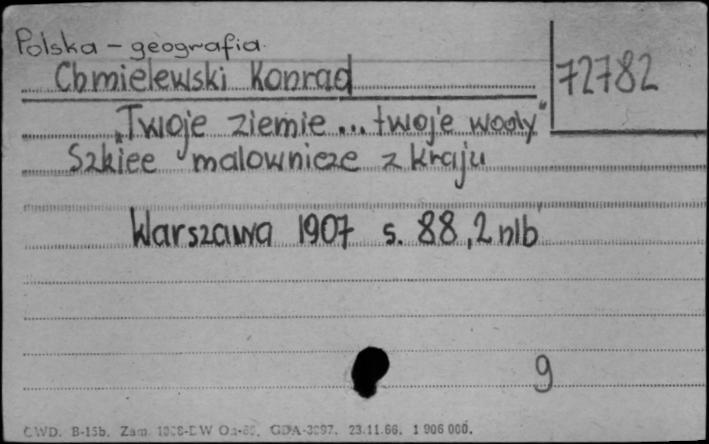 Polska - geografia.
Chmielewski Konrad
72782
"Twoje ziemie... twoje wody"
Szkice malownicze z kraju
Warszawa 1907 s. 88, 2 nlb
9
CWD. B-15b. Zam. GDA-3097. 23.11.66. 1 906 000.